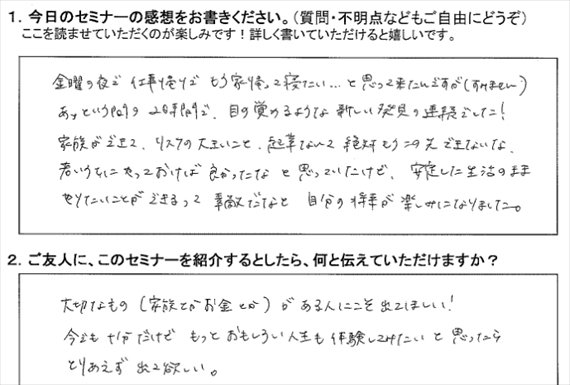 1. 今日のセミナーの感想をお書きください。(質問・不明点などもご自由にどうぞ)
ここを読ませていただくのが楽しみです!詳しく書いていただけると嬉しいです。
金曜の夜で 仕事帰りで もう家帰って寝たい…と思って来たんですが(すみません)
あっという間の 2時間で、目の覚めるような 新しい発見の連続でした!
家族ができて、リスクの大きいこと、起業なんて 絶対もうこの先できないな、
若いうちにやっておけば 良かったな と思っていたけど、安定した生活のまま
やりたいことが できるって 素敵だなと 自分の将来が 楽しみになりました。
2. ご友人に、このセミナーを紹介するとしたら、何と伝えていただけますか?
大切なもの(家族とかお金とか)が ある人にこそ 出てほしい!
今でも 十分だけど もっと おもしろい 人生も 体験してみたい と思ったら
とりあえず 出て欲しい。